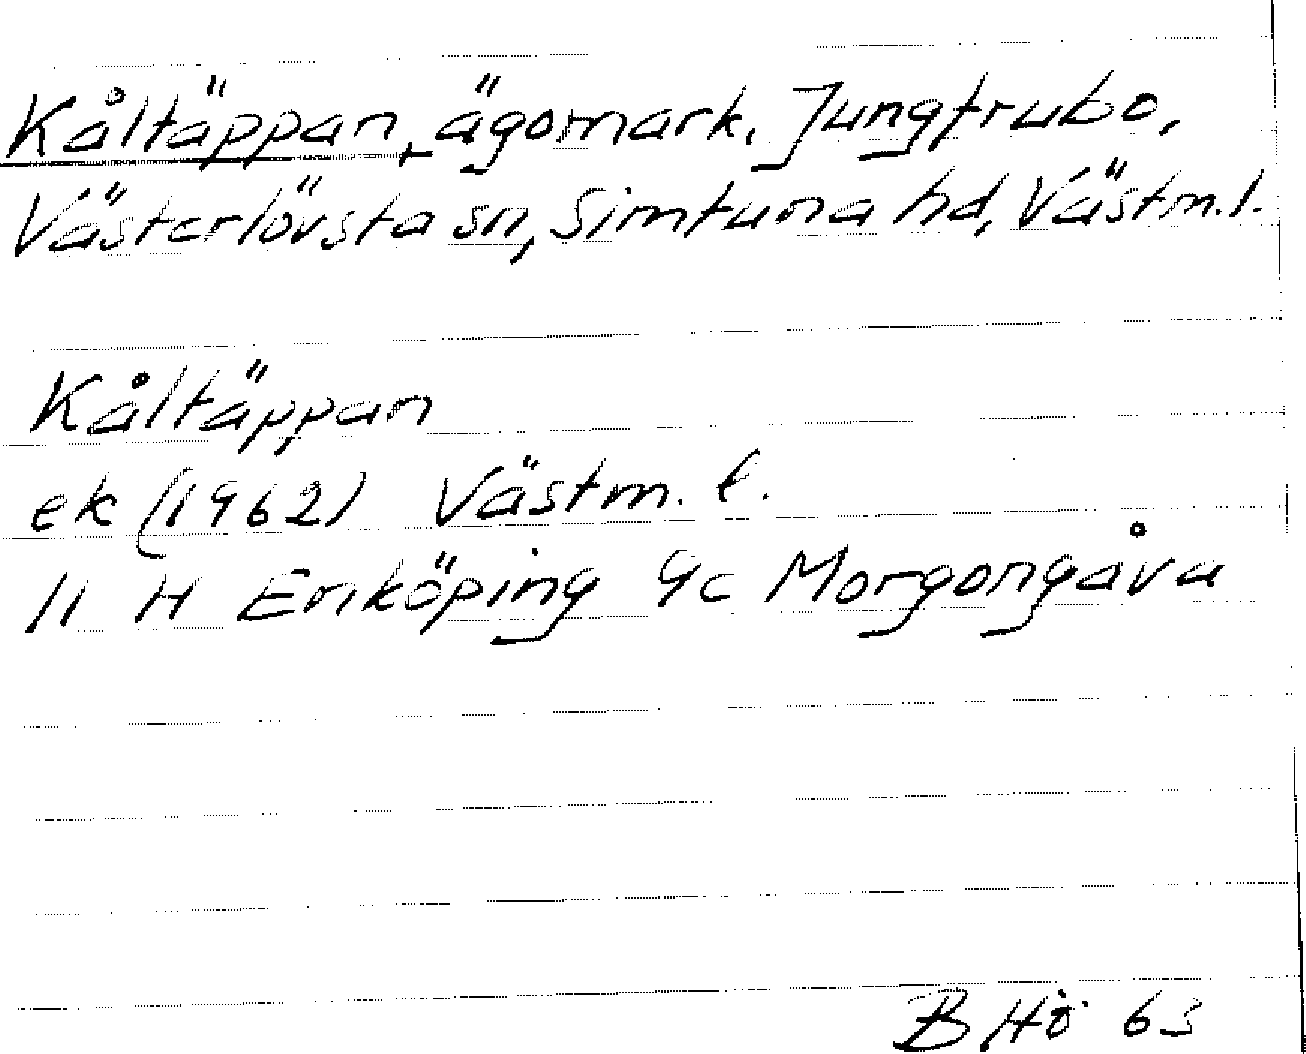 Kåltäppan, ägomark, Jungfrubo,
Västerlövsta sn, Simtuna hd, Västm. l.
Kåltäppan
ek (1962) Västm. l.
11 H Enköping 9c Morgongåva
B Hö 63